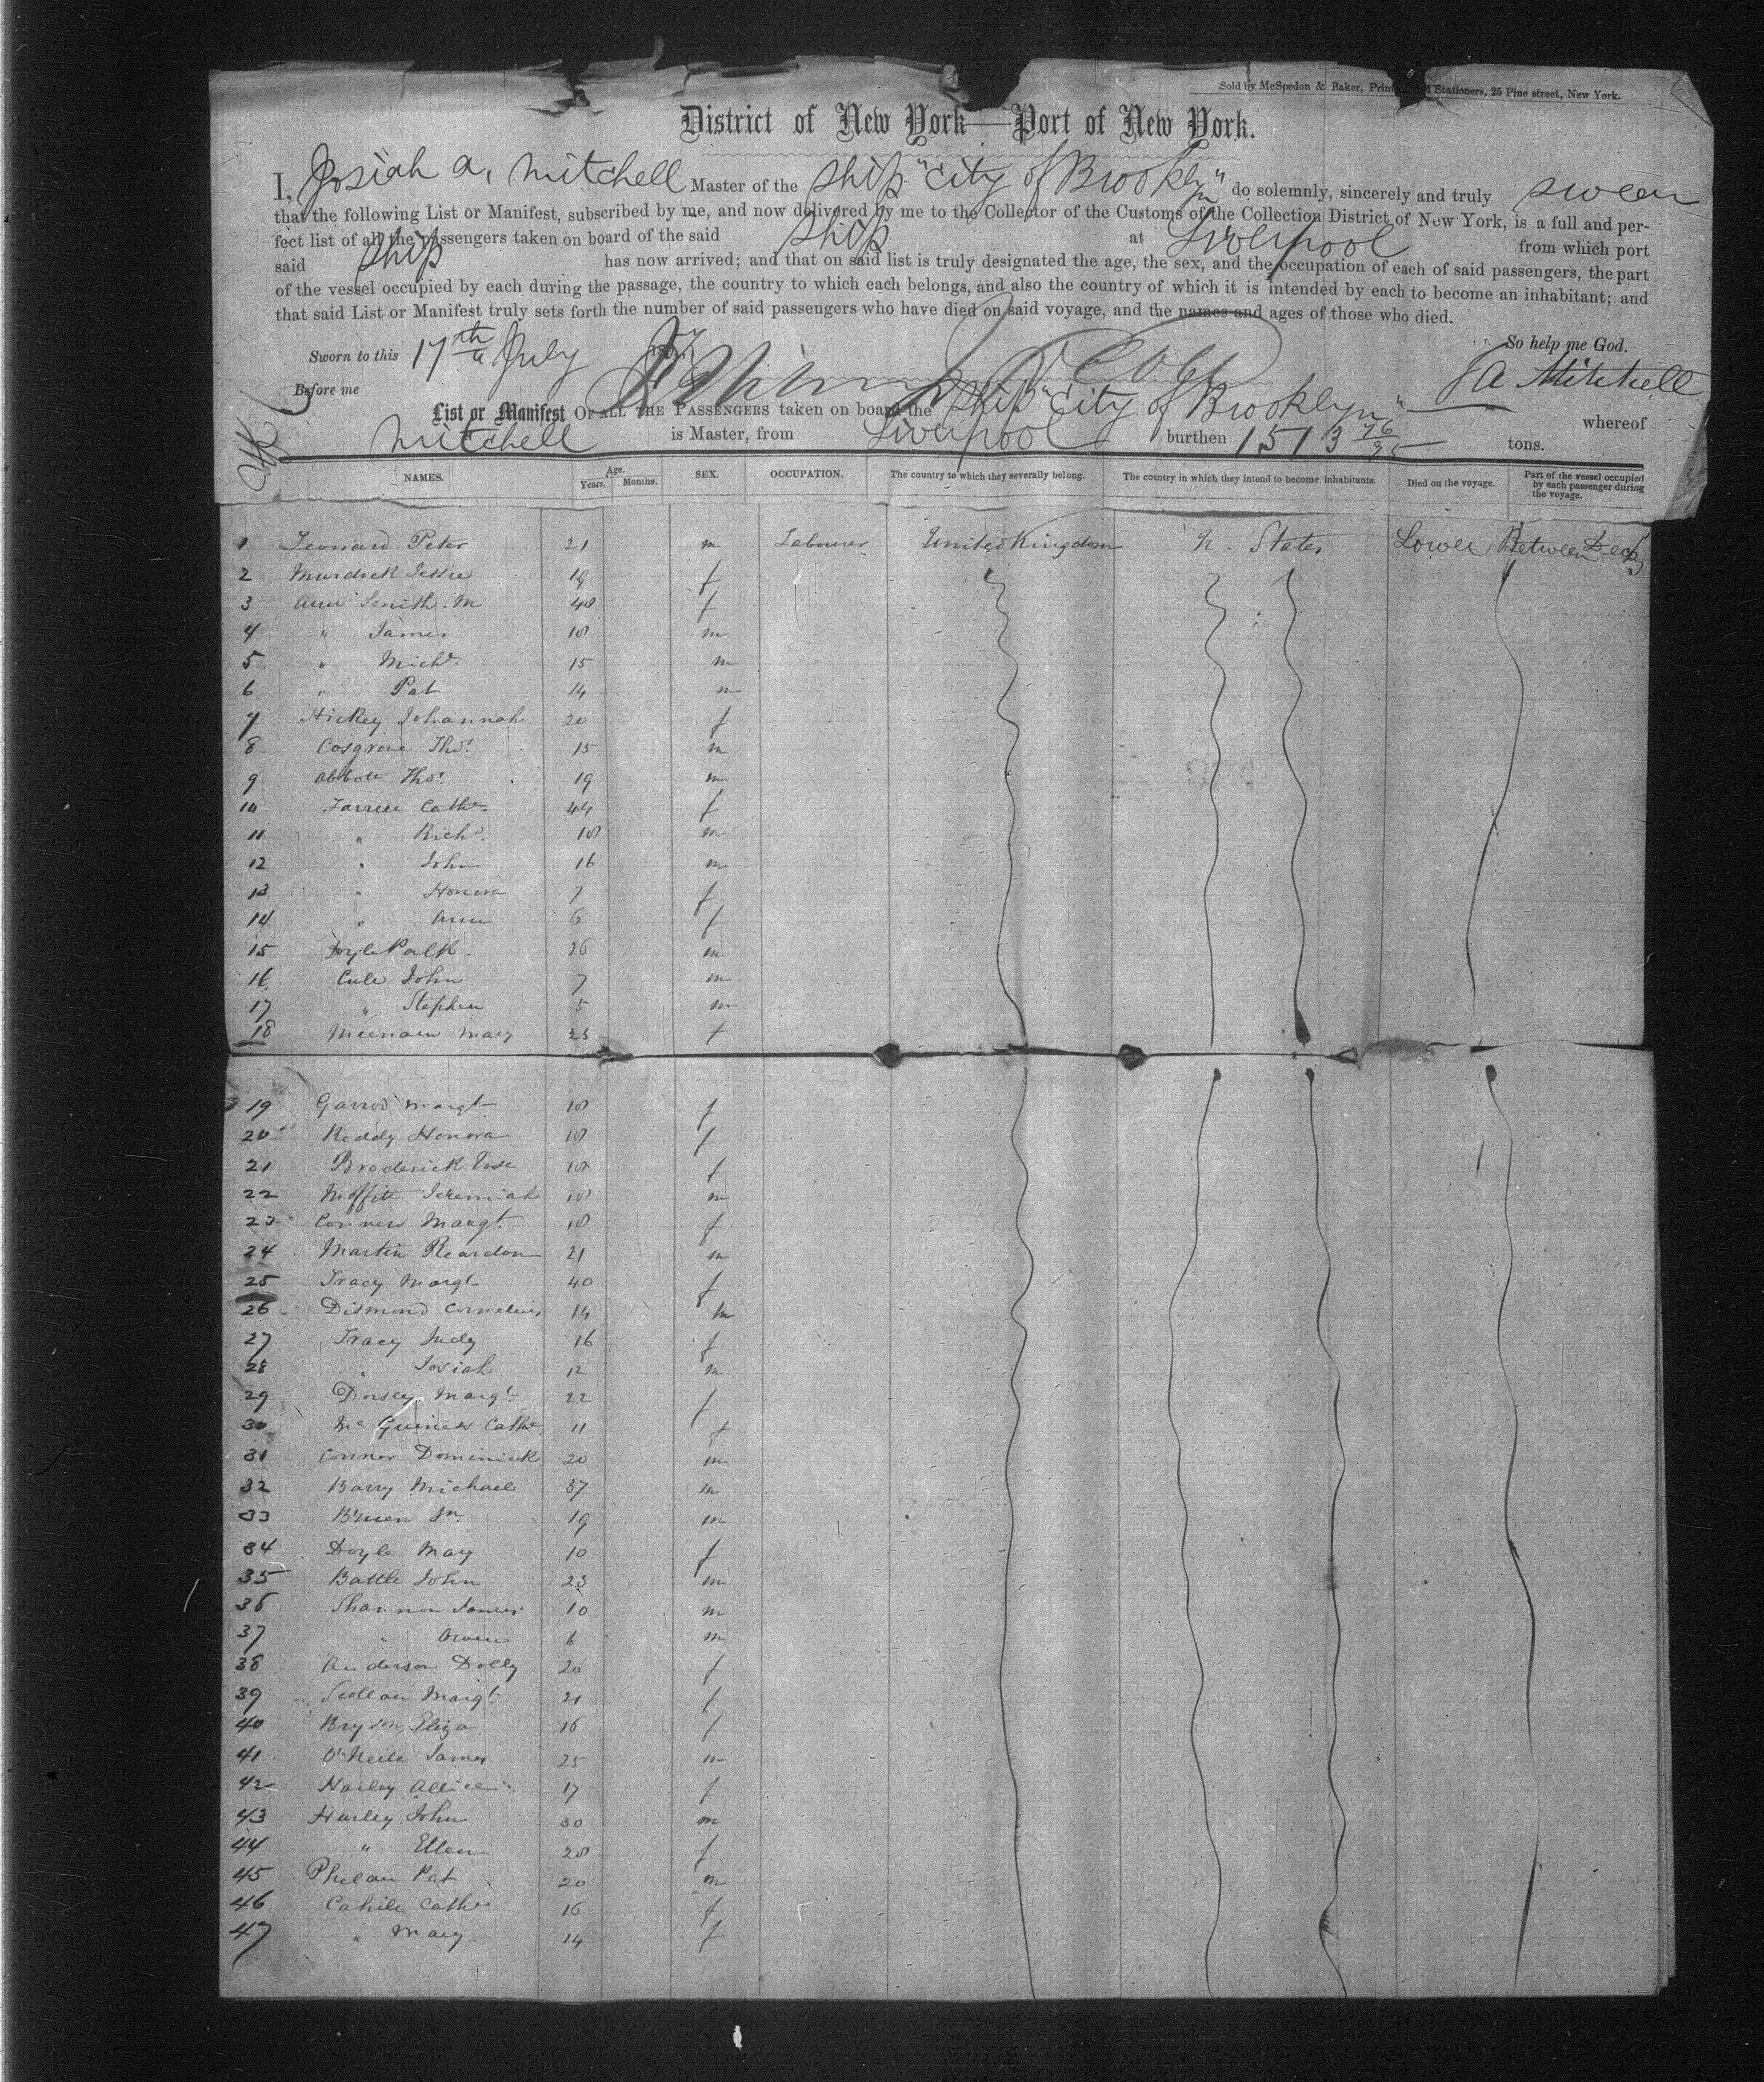 Sold by McSpedon & Baker, Print Stationers, 25 Pine street, New York.
District of New York—Port of New York.
I, Josiah A, Mitchell Master of the Ship "City of Brooklyn" do solemnly, sincerely and truly swear
that the following List or Manifest, subscribed by me, and now delivered by me to the Collector of the Customs of the Collection District of New York, is a full and per-
fect list of all the passengers taken on board of the said Ship at Liverpool from which port
said Ship has now arrived; and that on said list is truly designated the age, the sex, and the occupation of each of said passengers, the part
of the vessel occupied by each during the passage, the country to which each belongs, and also the country of which it is intended by each to become an inhabitant; and
that said List or Manifest truly sets forth the number of said passengers who have died on said voyage, and the names and ages of those who died.
So help me God.
Sworn to this 17th July
J A Mitchell
Before me
List or Manifest OF ALL THE PASSENGERS taken on board the Ship "City of Brooklyn" whereof
Mitchell is Master, from Liverpool burthen 1513 76/95 tons.
NAMES. Age. Years. Months. SEX. OCCUPATION. The country to which they severally belong. The country in which they intend to become inhabitants. Died on the voyage. Part of the vessel occupied by each passenger during the voyage.
1 Leonard Peter 21 m Labourer United Kingdom U. States Lower Between Decks
2 Murdock Jessie 19 f
3 Ann Smith. M 40 f
4 " James 18 m
5 " Michl. 15 m
6 " Pat 14 m
7 Hickey Johannah 20 f
8 Cosgrove Thos. 15 m
9 Abbott Thos. 19 m
10 Farrell Cathe. 44 f
11 " Richd. 18 m
12 " John 16 m
13 " Honora 7 f
14 " Ann 6 f
15 Doyle Patk. 26 m
16 Cule John 7 m
17 " Stephen 5 m
18 Mary 23 f
19 Margt. 18 f
20 Reddy Honora 18 f
21 Broderick 18 f
22 Moffitt Jeremiah 18 m
23 Conners Margt. 18 f
24 Martin Reardon 21 m
25 Tracy Margt 40 f
26 Dismond Cornelius 14 m
27 Tracy Judy 16 f
28 " Josiah 12 m
29 Dorsey Margt. 22 f
30 McGuiness Cathe. 11 f
31 Connor Dominick 20 m
32 Barry Michael 37 m
33 Brien Jn. 19 m
34 Doyle May 10 f
35 Battle John 23 m
36 Shannon James 10 m
37 " Owen 6 m
38 Anderson Dolly 20 f
39 Scollan Margt. 21 f
40 Bryson Eliza 16 f
41 O'Neile James 25 m
42 Harley Allice 17 f
43 Hurley John 30 m
44 " Ellen 28 f
45 Phelan Pat 20 m
46 Cahile Cathe 16 f
47 " Mary. 14 f